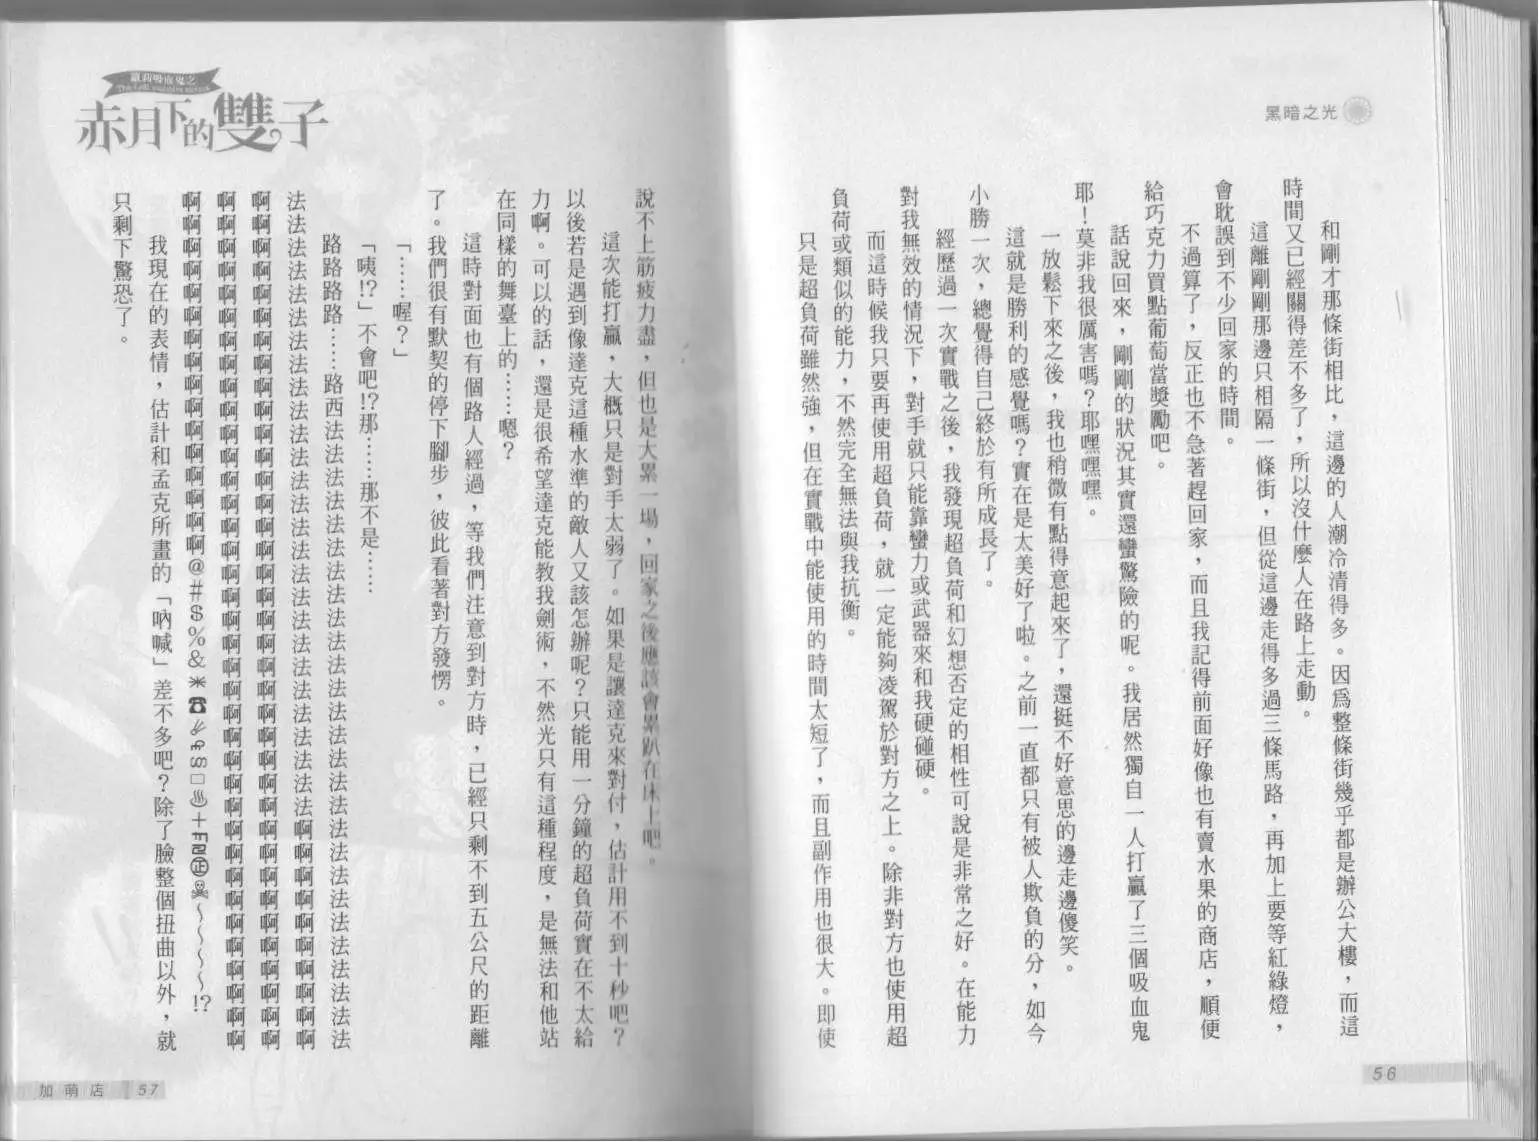 黑暗之光
和剛才那條街相比，這邊的人潮冷清得多。因為整條街幾乎都是辦公大樓，而這
時間又已經關得差不多了，所以沒什麼人在路上走動。
這離剛剛那邊只相隔一條街，但從這邊走得多過三條馬路，再加上要等紅綠燈，
會耽誤到不少回家的時間。
不過算了，反正也不急著趕回家，而且我記得前面好像也有賣水果的商店，順便
給巧克力買點葡萄當獎勵吧。
話說回來，剛剛的狀況其實還蠻驚險的呢。我居然獨自一人打贏了三個吸血鬼
耶！莫非我很厲害嗎？耶嘿嘿嘿。
一放鬆下來之後，我也稍微有點得意起來了，還挺不好意思的邊走邊傻笑。
這就是勝利的感覺嗎？實在是太美好了啦。之前一直都只有被人欺負的分，如今
小勝一次，總覺得自己終於有所成長了。
經歷過一次實戰之後，我發現超負荷和幻想否定的相性可說是非常之好。在能力
對我無效的情況下，對手就只能靠蠻力或武器來和我硬碰硬。
而這時候我只要再使用超負荷，就一定能夠凌駕於對方之上。除非對方也使用超
負荷或類似的能力，不然完全無法與我抗衡。
只是超負荷雖然強，但在實戰中能使用的時間太短了，而且副作用也很大。即使
56
蘿莉吸血鬼之
赤月下的雙子
說不上筋疲力盡，但也是大累一場，回家之後應該會累趴在床上吧。
這次能打贏，大概只是對手太弱了。如果是讓達克來對付，估計用不到十秒吧？
以後若是遇到像達克這種水準的敵人又該怎辦呢？只能用一分鐘的超負荷實在不太給
力啊。可以的話，還是很希望達克能教我劍術，不然光只有這種程度，是無法和他站
在同樣的舞臺上的……嗯？
這時對面也有個路人經過，等我們注意到對方時，已經只剩不到五公尺的距離
了。我們很有默契的停下腳步，彼此看著對方發愣。
「……喔？」
「咦!?」不會吧!?那……那不是……
路路路路……路西法法法法法法法法法法法法法法法法法法法法法法法法法法法
法法法法法法法法法法法法法法法法法法法法法法法法法法法啊啊啊啊啊啊啊啊啊啊
啊啊啊啊啊啊啊啊啊啊啊啊啊啊啊啊啊啊啊啊啊啊啊啊啊啊啊啊啊啊啊啊啊啊啊啊啊
啊啊啊啊啊啊啊啊啊啊啊啊啊啊啊啊啊啊啊啊啊啊啊啊啊啊啊啊啊啊啊啊啊啊啊啊啊
啊啊啊啊啊啊啊啊啊啊啊啊啊啊啊啊@#$%&＊☎§□♨＋㊣☠～～～～!?
我現在的表情，估計和孟克所畫的「吶喊」差不多吧？除了臉整個扭曲以外，就
只剩下驚恐了。
加萌店 57